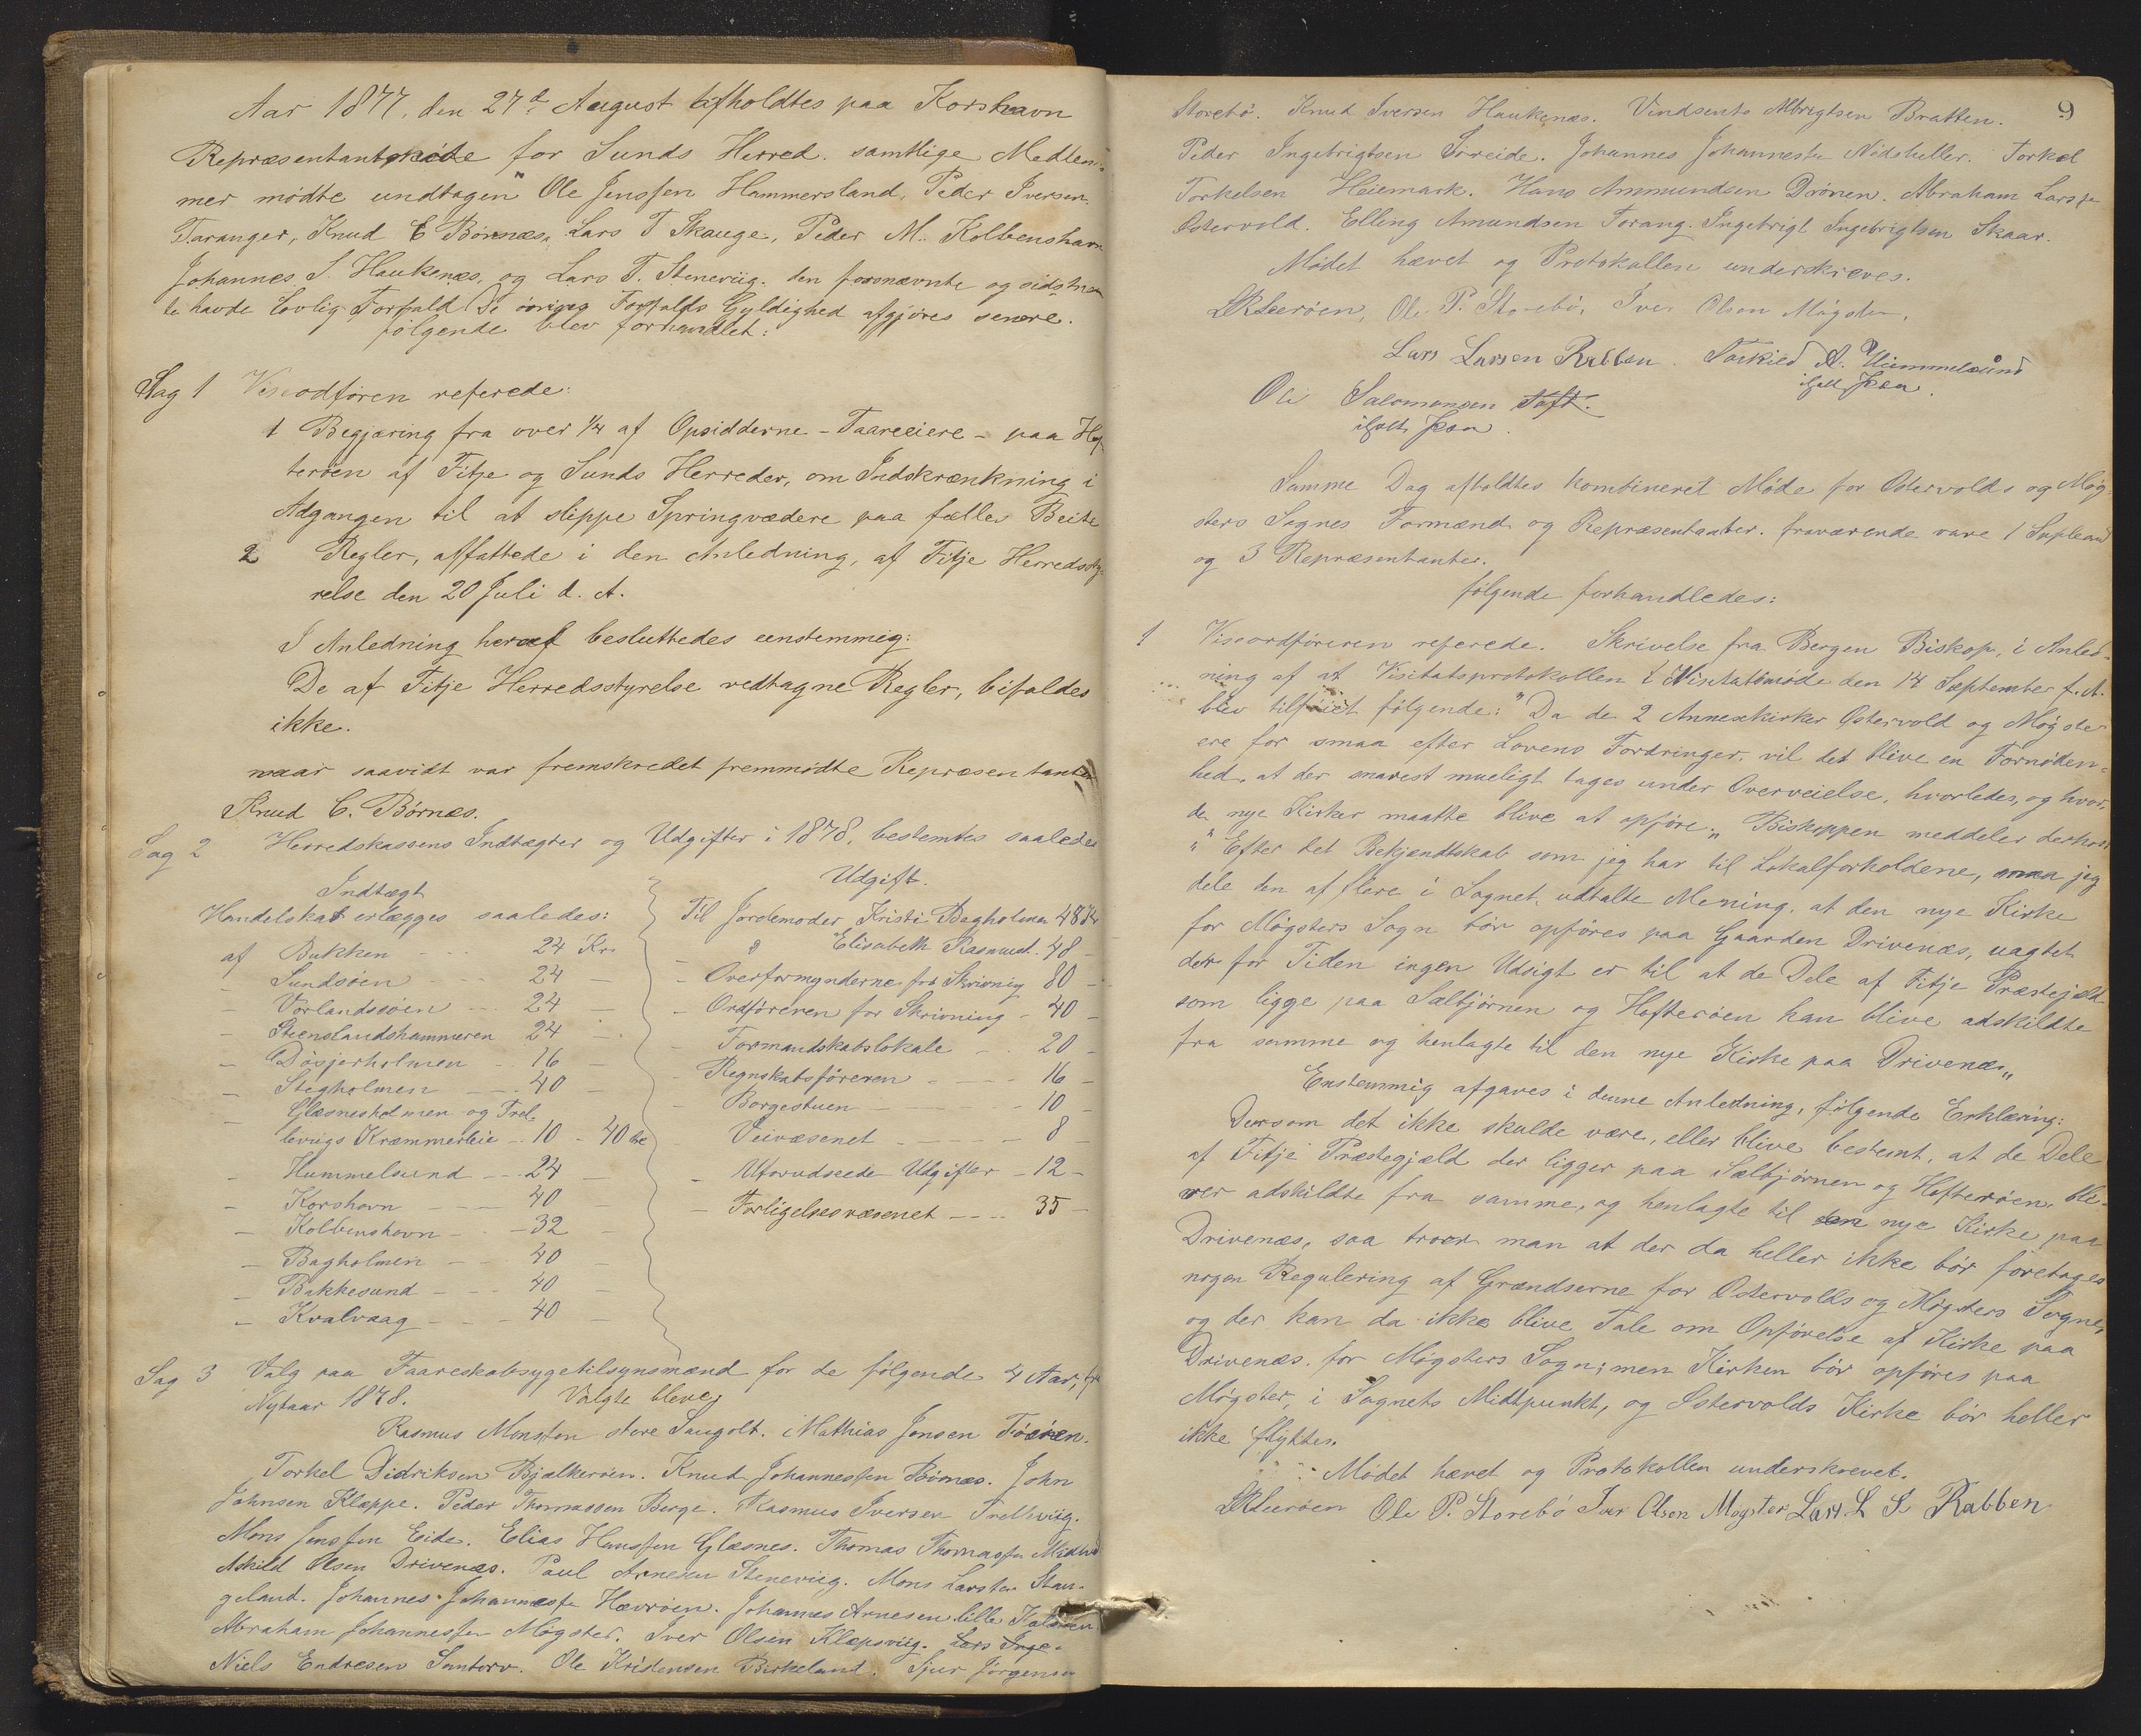 Aar 1877, den 27de August afholdtes paa Korshavn
Repræsentantmøde for Sunds Herred. samtlige Medlem-
mer mødte undtagen Ole Jenssen Hammersland, Peder Iversen
Taranger, Knud C Børnæs, Lars T Skauge, Peder M. Kolbenshavn
Johannes S. Haukenæs, og Lars T. Steneviig. den forsnævnte og sidstnæn
te havde Lovlig Forfald. De øvriges Forfalds Gyldighed afgjøres senere.
følgende blev forhandlet:
Sag 1 Viseordføren referede:
1 Begjæring fra over 1/4 af Opsidderne - Faareeiere - paa Hof-
terøen af Fitje og Sunds Herreder, om Indskrænkning i
Adgangen til at slippe Springvædere paa fælles Beite
2 Regler, affattede i den Anledning, af Fitje Herredssty-
relse den 20 Juli d. A.
I Anledning heraf besluttedes enstemmig:
De af Fitje Herredsstyrelse vedtagne Regler, bifaldes
ikke.
naar saavidt var fremskredet fremmødte Repræsentanten
Knud C. Børnæs.
Sag 2 Herredskassens Indtægter og Udgifter i 1878, bestemtes saaledes
Indtægt
Handelskat erlægges saaledes:
af Bukken - - - 24 Kr.
- Sundsøen - - - 24 -
- Vorlandsøen - - - 24 -
- Steenslandshammeren 24 -
- Døsjerholmen - 16 -
- Stegholmen - - 40 -
- Glæsnesholmen og Trel-
leviigs Kræmmerleie - 10 - 40
- Hummelsund - - 24 -
- Korshavn - - - 40 -
- Kolbenshavn - - 32 -
- Bagholmen - - 40 -
- Bakkesund - - - 40 -
- Kvalvaag - - - 40 -
Udgift.
Til Jordemoder Kristi Bagholmen 48 Kr
- " Elisabeth Rasmusd. 48 -
- Overformynderne for Skrivning 80 -
- Ordføreren for Skrivning - 40 -
- Formandskabslokale - 20 -
- Regnskabsføreren - - - 16 -
- Borgestuen - - - 10 -
- Veivæsenet - - - 8 -
- Uforudseede Udgifter - 12 -
- Forligelsesvæsenet - - - 35 -
Sag 3 Valg paa Faareskabsygetilsynsmænd for de følgende 4 Aar, fra
Nytaar 1878. Valgte bleve,
Rasmus Monssen store Saugolt. Mathias Jensen Tøsøen.
Torkel Didriksen Bjælkerøen. Knud Johannessen Børnæs. John
Johnsen Klæppe. Peder Thomassen Berge. Rasmus Iversen Trelleviig.
Mons Jenssen Eide. Elias Hanssen Glæsnes. Thomas Thomassen
Askild Olsen Drivenæs. Paul Arnesen Steneviig. Mons Larssen Stan-
geland. Johannes Johannessen Hævrøen. Johannes Arnesen lille Kalsøen
Abraham Johannessen Møgster. Iver Olsen Klepsviig. Lars Inge-
Niels Endresen Santorv. Ole Kristensen Birkeland. Sjur Jørgensen
9
Storebø. Knud Iversen Haukenæs. Vindsents Albrigtsen Bratten.
Peder Ingebrigtsen Søreide. Johannes Johannessen Nødsheller. Torkel
Torkelsen Heiemark. Hans Ammundsen Drønen. Abraham Larssen
Østervold. Elling Amundsen Torang. Ingebrigt Ingebrigtsen Skaar.
Mødet hævet og Protokollen underskreves.
LKLerøen, Ole P. Storebø, Iver Olsen Møgster,
Lars Larssen Rabben. Torkild A. Hummelsund
Ole Salomonsen Toft.
Samme Dag afholdtes kombineret Møde for Østervolds og Møg-
sters Sognes Formænd og Repræsentanter. fraværende vare 1 Supleant
og 3 Repræsentanter.
følgende forhandledes:
1 Viseordføreren referede. Skrivelse fra Bergen Biskop, i Anled-
ning af at Visitatsprotokollen i Visitatsmøde den 14 September f. A.
blev tilføiet følgende: "Da de 2 Annexkirker Østervold og Møgster
ere for smaa efter Lovens Fordringer, vil det blive en Fornøden-
hed, at der snarest mueligt tages under Overveielse, hvorledes, og hvor,
de nye Kirker maatte blive at opføre." Biskoppen meddeler derhos:
"Efter det Bekjendtskab som jeg har til Lokalforholdene, maa jeg
dele den af flere i Sognet udtalte Mening, at den nye Kirke
for Møgsters Sogn bør opføres paa Gaarden Drivenæs, uagtet
der for Tiden ingen Udsigt er til at de Dele af Fitje Præstegjeld
som ligge paa Sælbjørnen og Hofterøen kan blive adskildte
fra samme og henlagte til den nye Kirke paa Drivenæs"
Enstemmig afgaves i denne Anledning, følgende Erklæring:
Dersom det ikke skulde være, eller blive bestemt, at de Dele
af Fitje Præstegjæld der ligger paa Sælbjørnen og Hofterøen, bli-
ver adskildte fra samme, og henlagte til den nye Kirke paa
Drivenæs, saa troer man at der da heller ikke bør foretages
nogen Regulering af Grændserne for Østervolds og Møgsters Sogne,
og der kan da ikke blive Tale om Opførelse af Kirke paa
Drivenæs. for Møgsters Sogn; men Kirken bør opføres paa
Møgster, i Sognets Midtpunkt, og Østervolds Kirke bør heller
ikke flyttes.
Mødet hævet og Protokollen underskrevet.
LKLerøen Ole P. Storebø Iver Olsen Møgster Lars. L S Rabben